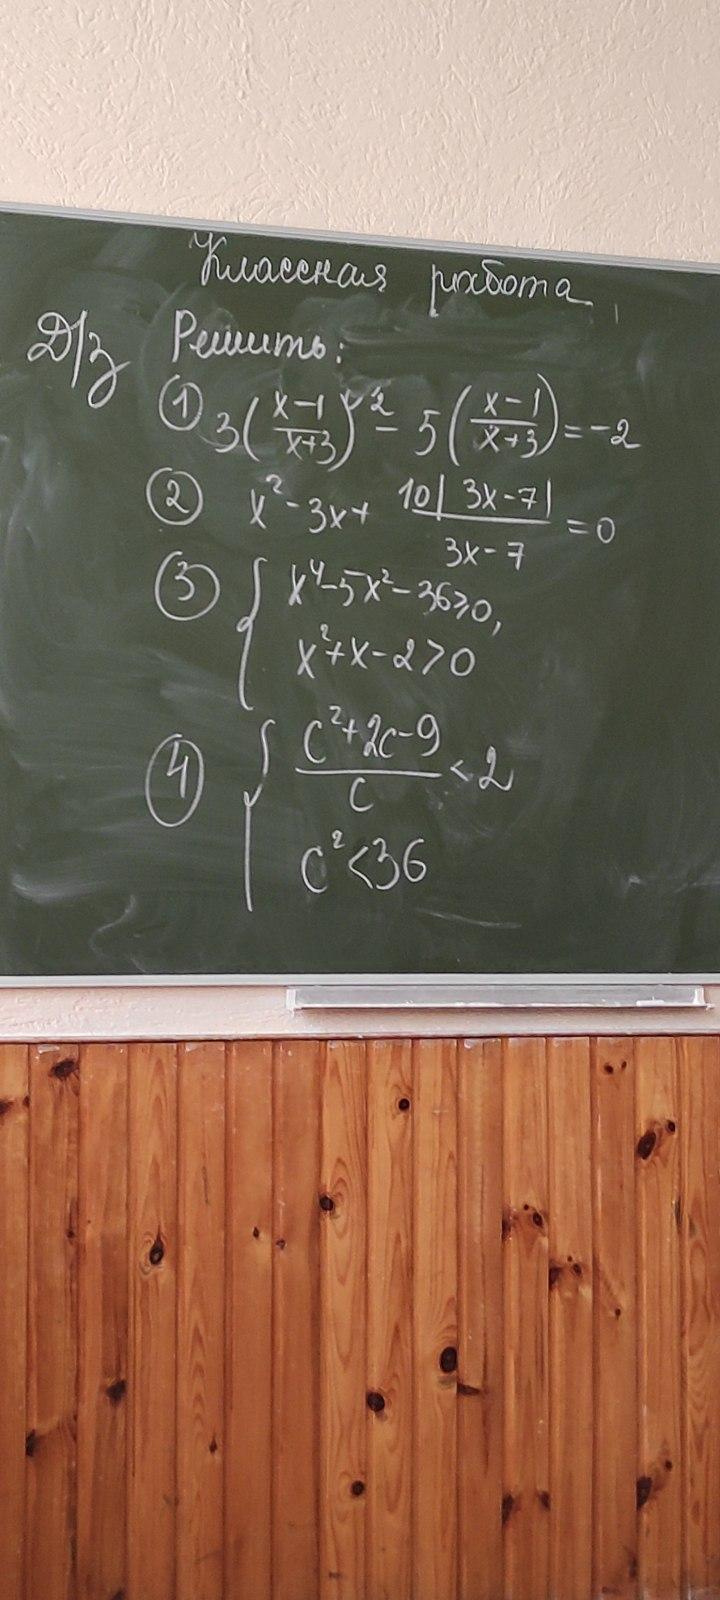 Классная работа
Д/з Решить:
① 3((x-1)/(x+3))² - 5((x-1)/(x+3)) = -2
② x² - 3x + (10|3x-7|)/(3x-7) = 0
③ { x⁴-5x²-36≥0,
x²+x-2>0
④ { (c²+2c-9)/c < 2
c²<36